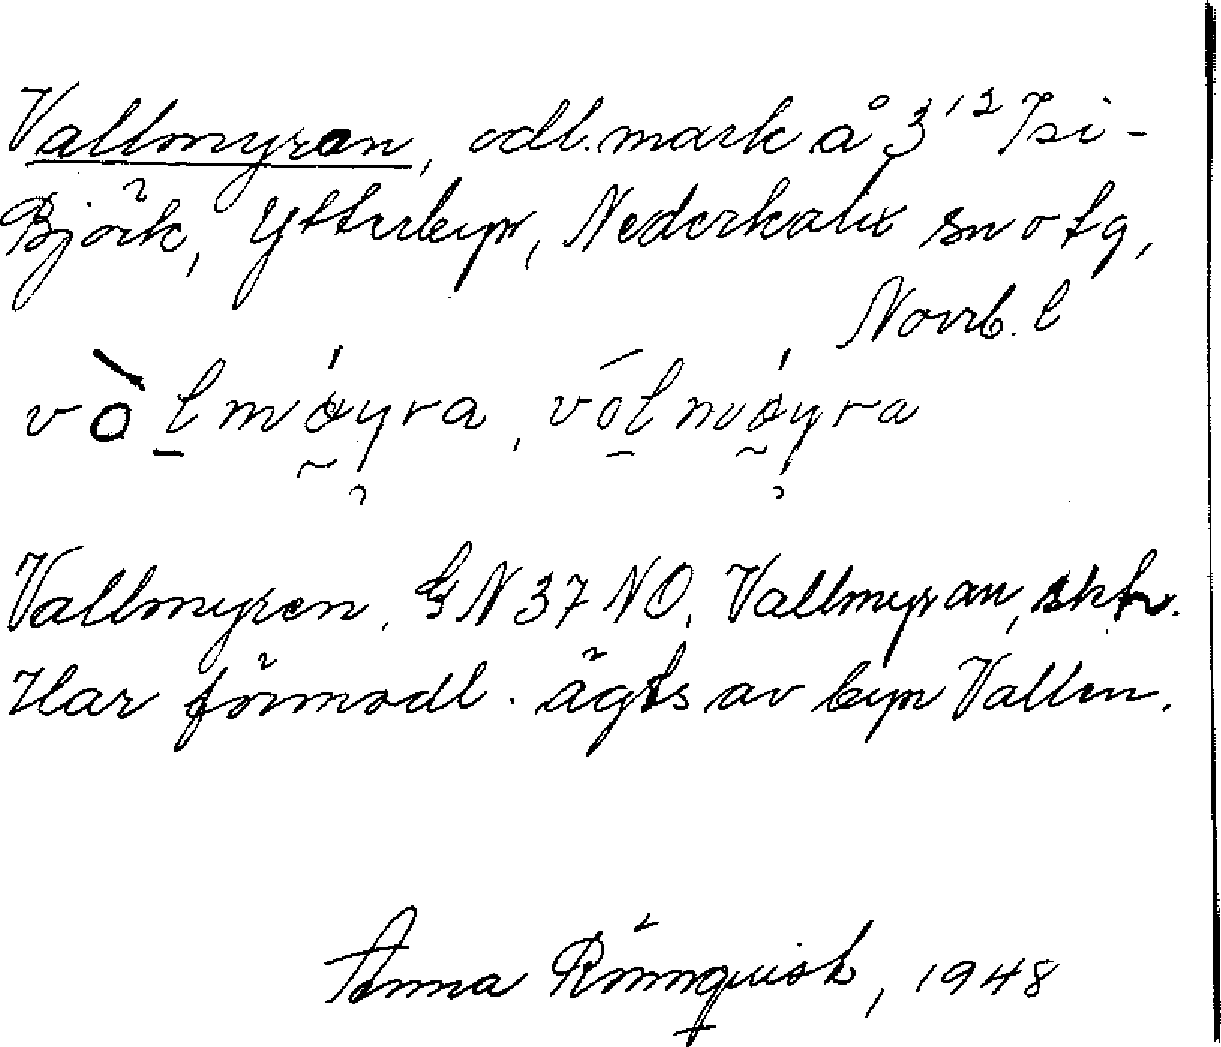 Vallmyren, odl. mark å 3¹² Isi-
Björk, Ytterbyn, Nederkalix sn o tg,
Norrb. l
vòlmøyra, vólmøyra
Vallmyren. GN 37 NO. Vallmyran, skh.
Har förmodl. ägts av byn Vallen.
Anna Rönnquist, 1948